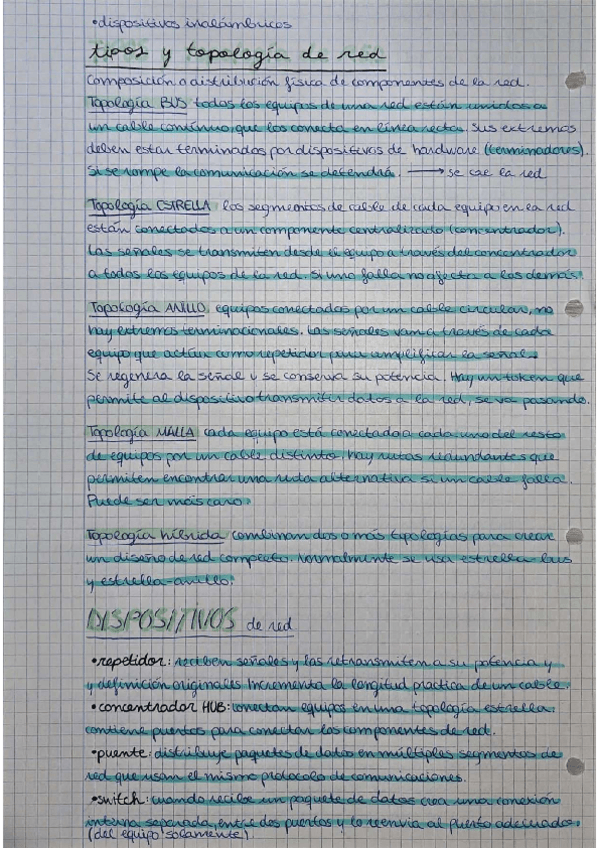 •dispositivos inalámbricos
tipos y topología de red
Composición o distribución física de componentes de la red.
Topología BUS todos los equipos de una red están unidos a
un cable continuo, que los conecta en línea recta. Sus extremos
deben estar terminados por dispositivos de hardware (terminadores).
Si se rompe la comunicación se detendrá. → se cae la red
Topología ESTRELLA los segmentos de cable de cada equipo en la red
están conectados a un componente centralizado (concentrador).
Las señales se transmiten desde el equipo a través del concentrador
a todos los equipos de la red. Si uno falla no afecta a los demás.
Topología ANILLO equipos conectados por un cable circular, no
hay extremos terminacionales. Las señales van a través de cada
equipo que actúa como repetidor para amplificar la señal.
Se regenera la señal y se conserva su potencia. Hay un token que
permite al dispositivo transmitir datos a la red, se va pasando.
Topología MALLA cada equipo está conectado a cada uno del resto
de equipos por un cable distinto. Hay rutas redundantes que
permiten encontrar una ruta alternativa si un cable falla.
Puede ser más caro.
Topología híbrida combinan dos o más topologías para crear
un diseño de red completo. Normalmente se usa estrella-bus
y estrella-anillo.
DISPOSITIVOS de red
•repetidor: reciben señales y las retransmiten a su potencia y
y definición originales. Incrementa la longitud practica de un cable.
•concentrador HUB: conectan equipos en una topología estrella.
contiene puertos para conectar los componentes de red.
•puente: distribuye paquetes de datos en múltiples segmentos de
red que usan el mismo protocolo de comunicaciones.
•switch: cuando recibe un paquete de datos crea una conexión
interna separada, entre dos puertos y lo reenvia al puerto adecuado.
(del equipo solamente).